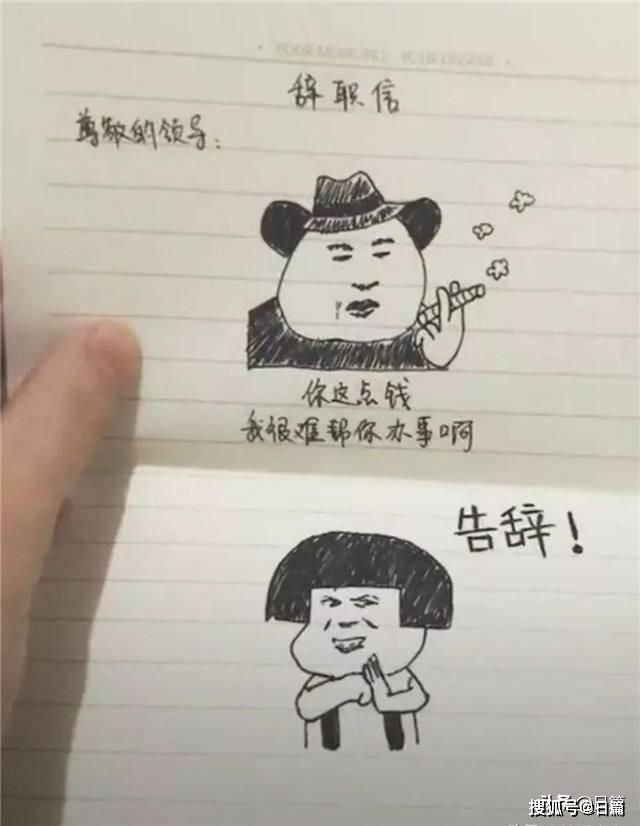 辞职信
尊敬的领导：
你这点钱
我很难帮你办事啊
告辞！
搜狐号@日篇